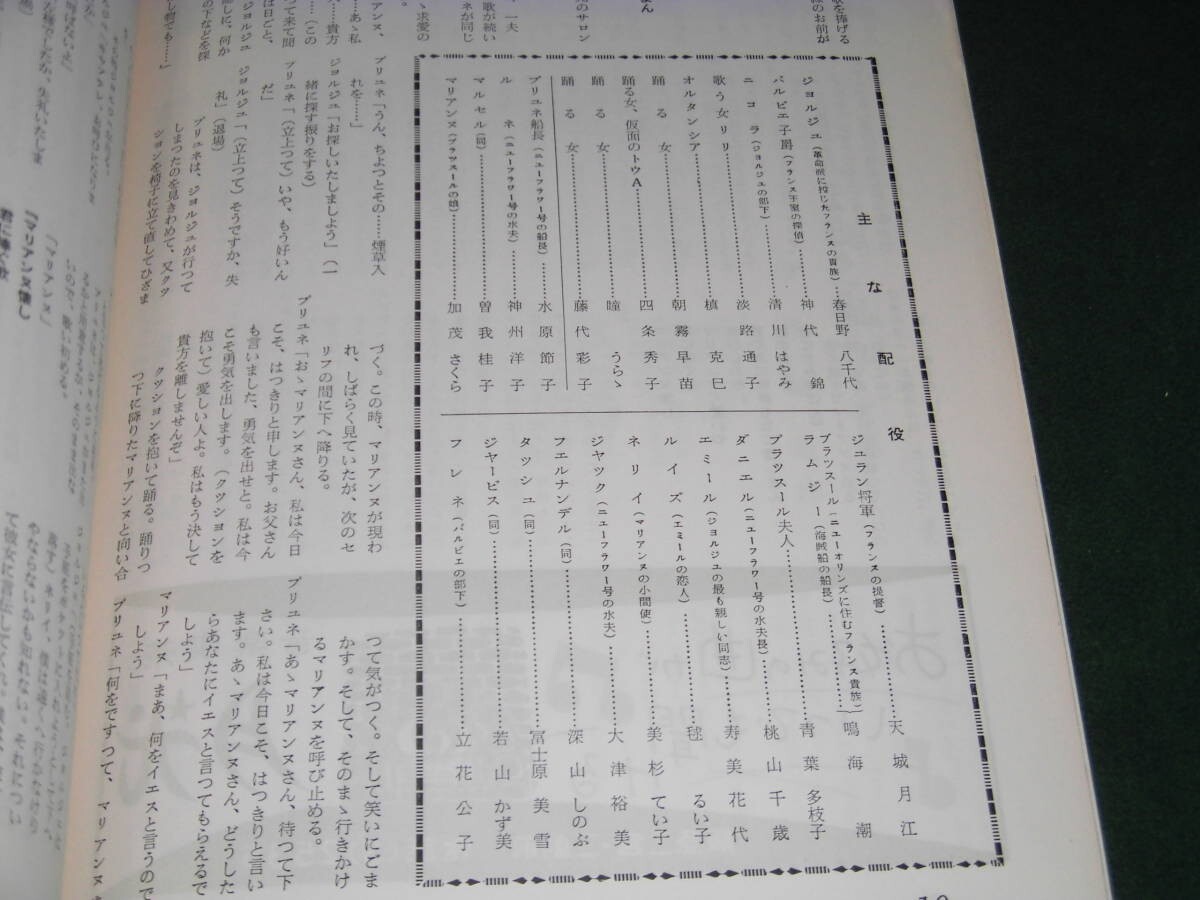 主な配役
ジョルジュ(革命派に投じたフランスの貴族)…春日野八千代
バルビエ子爵(フランス王室の探偵)…神代錦
ニコラ(ジョルジュの部下)…清川はやみ
歌う女リリ…淡路通子
オルタンシア…槙克巳
踊る女…朝霧早苗
踊る女、仮面のトウA…四条秀子
踊る女…瞳うらゝ
踊る女…藤代彩子
ブリュネ船長(ニューフラワー号の船長)…水原節子
ルネ(ニューフラワー号の水夫)…神州洋子
マルセル(同)…曽我桂子
マリアンヌ(プラッスールの娘)…加茂さくら
ジュラン将軍(フランスの提督)…天城月江
プラツスール(ニューオリンズに住むフランス貴族)…鳴海潮
ラムジー(海賊船の船長)…青葉多枝子
プラツスール夫人…桃山千歳
ダニエル(ニューフラワー号の水夫長)…寿美花代
エミール(ジョルジュの最も親しい同志)…毬るい子
ルイズ(エミールの恋人)…美杉てい子
ネリイ(マリアンヌの小間使)…大津裕美
ジヤツク(ニューフラワー号の水夫)…深山しのぶ
フエルナンデル(同)…冨士原美雪
タッシュ(同)…若山かず美
ジヤービス(同)…立花公子
フレネ(バルビエの部下)
歌を捧げる
のサロン
、一夫
歌が続い
ネが同じ
ゝ求愛の
ブリュネ「うん、ちよつとその……煙草入
れを……」
ジョルジュ「お探しいたしましよう」(一
緒に探す振りをする)
ブリュネ「(立上つて)いや、もう好いん
だ」
ジョルジュ「(立上つて)そうですか、失
礼」(退場)
ブリュネは、ジョルジュが行つて
しまつたのを見きわめて、又クツ
ションを椅子に立て直してひざま
づく。この時、マリアンヌが現わ
れ、しばらく見ていたが、次のセ
リフの間に下へ降りる。
ブリュネ「おゝマリアンヌさん、私は今日
こそ、はつきりと申します。お父さん
も言いました、勇気を出せと。私は今
こそ勇気を出します。(クツションを
抱いて)愛しい人よ。私はもう決して
貴方を離しませんぞ」
クツションを抱いて踊る。踊りつ
つ下に降りたマリアンヌと向い合
つて気がつく。そして笑いにごま
かす。そして、そのまゝ行きかけ
るマリアンヌを呼び止める。
ブリュネ「あゝマリアンヌさん、待つて下
さい。私は今日こそ、はつきりと言い
ます。あゝマリアンヌさん、どうした
らあなたにイエスと言つてもらえるで
しよう」
マリアンヌ「まあ、何をイエスと言うので
しよう」
ブリュネ「何をですつて、マリアンヌ
「マリアンヌ」
「マリアンヌ懐し